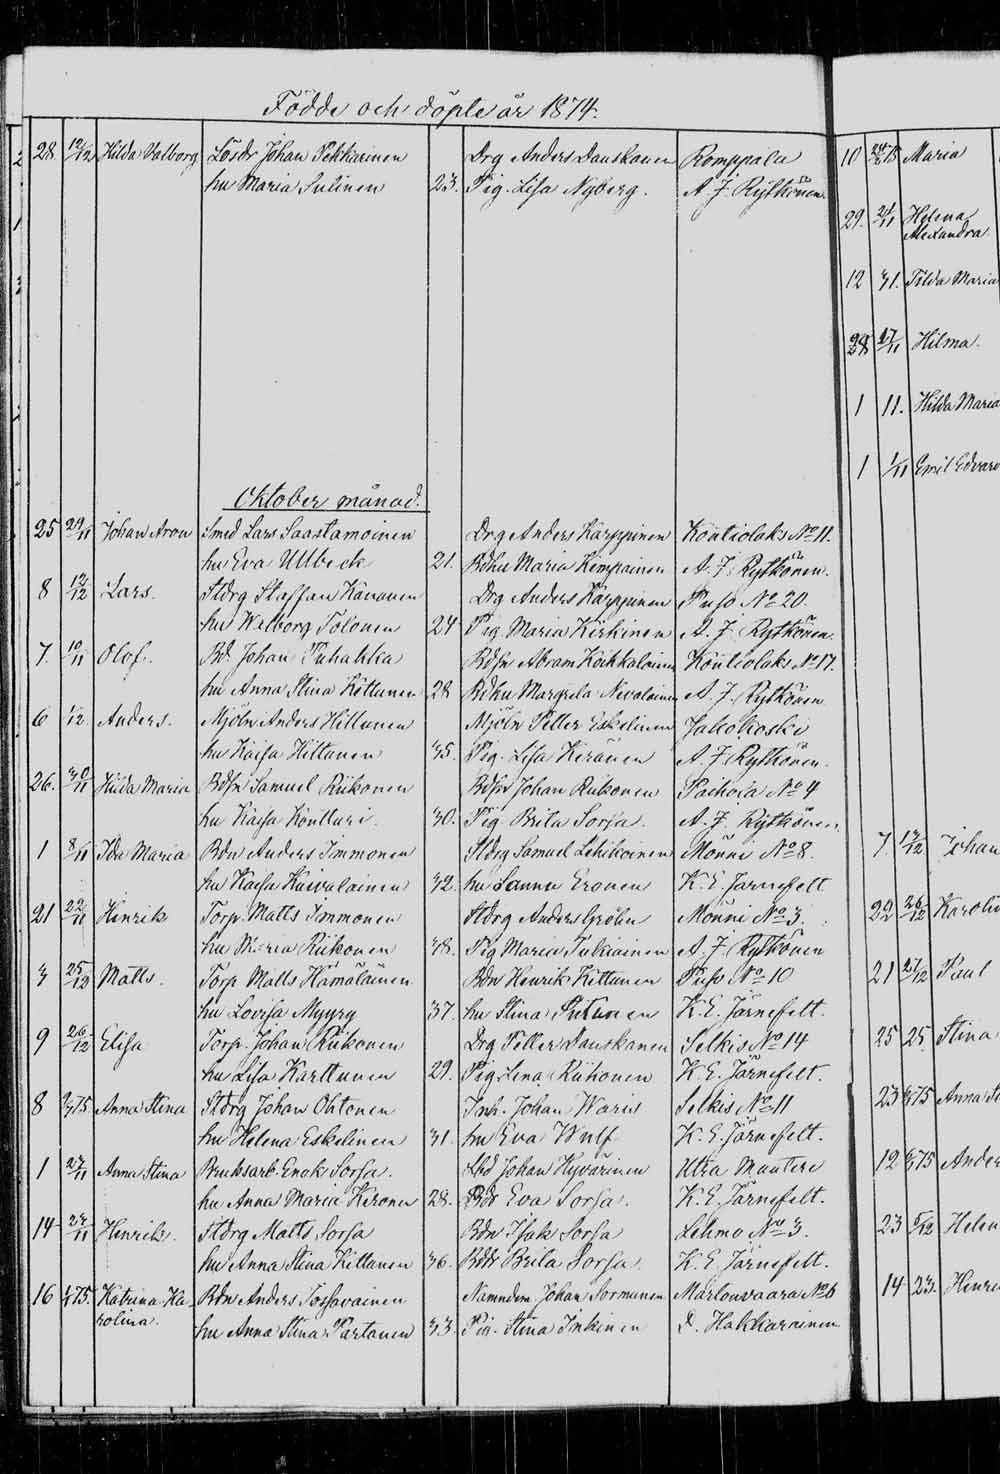 Födde och döpte år 1874.
28 12/12 Hilda Valborg Lösdr Johan Pekkarinen Drg Anders Danskanen Romppala
hu Maria Sulinen 23. Pig. Lisa Nyberg. A. J. Rytkönen
Oktober månad.
25 29/11 Johan Aron Smed Lars Saastamoinen Drg Anders Karppinen Kontiolaks No 11.
hu Eva Ullbeck 21. Bdhu Maria Kimpainen A. J. Rytkönen.
8 12/12 Lars. Stdrg Staffan Kananen Drg Anders Karppinen Puso No 20.
hu Walborg Tolonen 24 Pig. Maria Kirkinen A. J. Rytkönen
7. 10/11 Olof. Bd. Johan Puhakka Bdsn Abram Koikkalainen Kontiolaks No 17.
hu Anna Stina Kettunen 28 Bdhu Margreta Nevalainen A. J. Rytkönen
6 1/12. Anders. Mjöln Anders Hiltunen Mjöln Petter Eskelinen Jakokoski
hu Kaisa Hiltunen 35. Pig. Lisa Keränen A. J. Rytkönen.
26. 30/11 Hilda Maria Bdsn Samuel Riikonen Bdsn Johan Riikonen Paihola No 4
hu Kaisa Kontturi. 30. Pig. Brita Sorsa. A. J. Rytkönen
1 8/11 Ida Maria Bdn Anders Immonen Stdrg Samuel Lehikoinen Mönni No 8.
hu Kaisa Kuivalainen 32. hu Sanna Eronen K. E. Jarnefelt
21 22/11 Hinrik Torp. Matts Immonen Stdrg Anders Gröhn Mönni No 3.
hu Maria Riikonen 38. Pig Maria Tukiainen A. J. Rytkönen
3 25/12 Matts. Torp Matts Hämäläinen Bdn Henrik Kettunen Puso No 10
hu Lovisa Myyry 37. hu Stina Turunen K. E. Järnefelt.
9 26/12 Elisa Torp. Johan Riikonen Drg Petter Danskanen Selkis No 14
hu Lisa Karttunen 29. Pig. Lena Riikonen K. E. Järnefelt.
8 75 Anna Stina Stdrg Johan Ohtonen Inh. Johan Waris Selkis No 11
hu Helena Eskelinen 31. hu Eva Wulf K. E. Järnefelt.
1 27/11 Anna Stina Bruksarb. Enok Sorsa. Johan Hyvärinen Utra Mantere
hu Anna Maria Keronen 28. Eva Sorsa. K. E. Järnefelt.
14 27/11 Henrik. Stdrg Matts Sorsa Bdn Isak Sorsa Lehmo No 3.
hu Anna Stina Kettunen 36. Bddr Brita Sorsa. K. E. Järnefelt.
16 75. Katrina Ka- Bdn Anders Tossavainen Namndem Johan Sormunen Martonvaara No 6
rolina. hu Anna Stina Partanen 33. Pig. Stina Inkinen D. Hakkarainen
10 Maria
29. 21/11 Helena
Alexandra
12 31. Tilda Maria
28 17/11 Hilma.
1 11. Hilda Maria
1 1/11 Emil Edvard
7. 13/12 Johan
22 26/12
21 27/12 Paul
25 25. Stina
23 75 Anna
12 75
23 5/12
14 23.